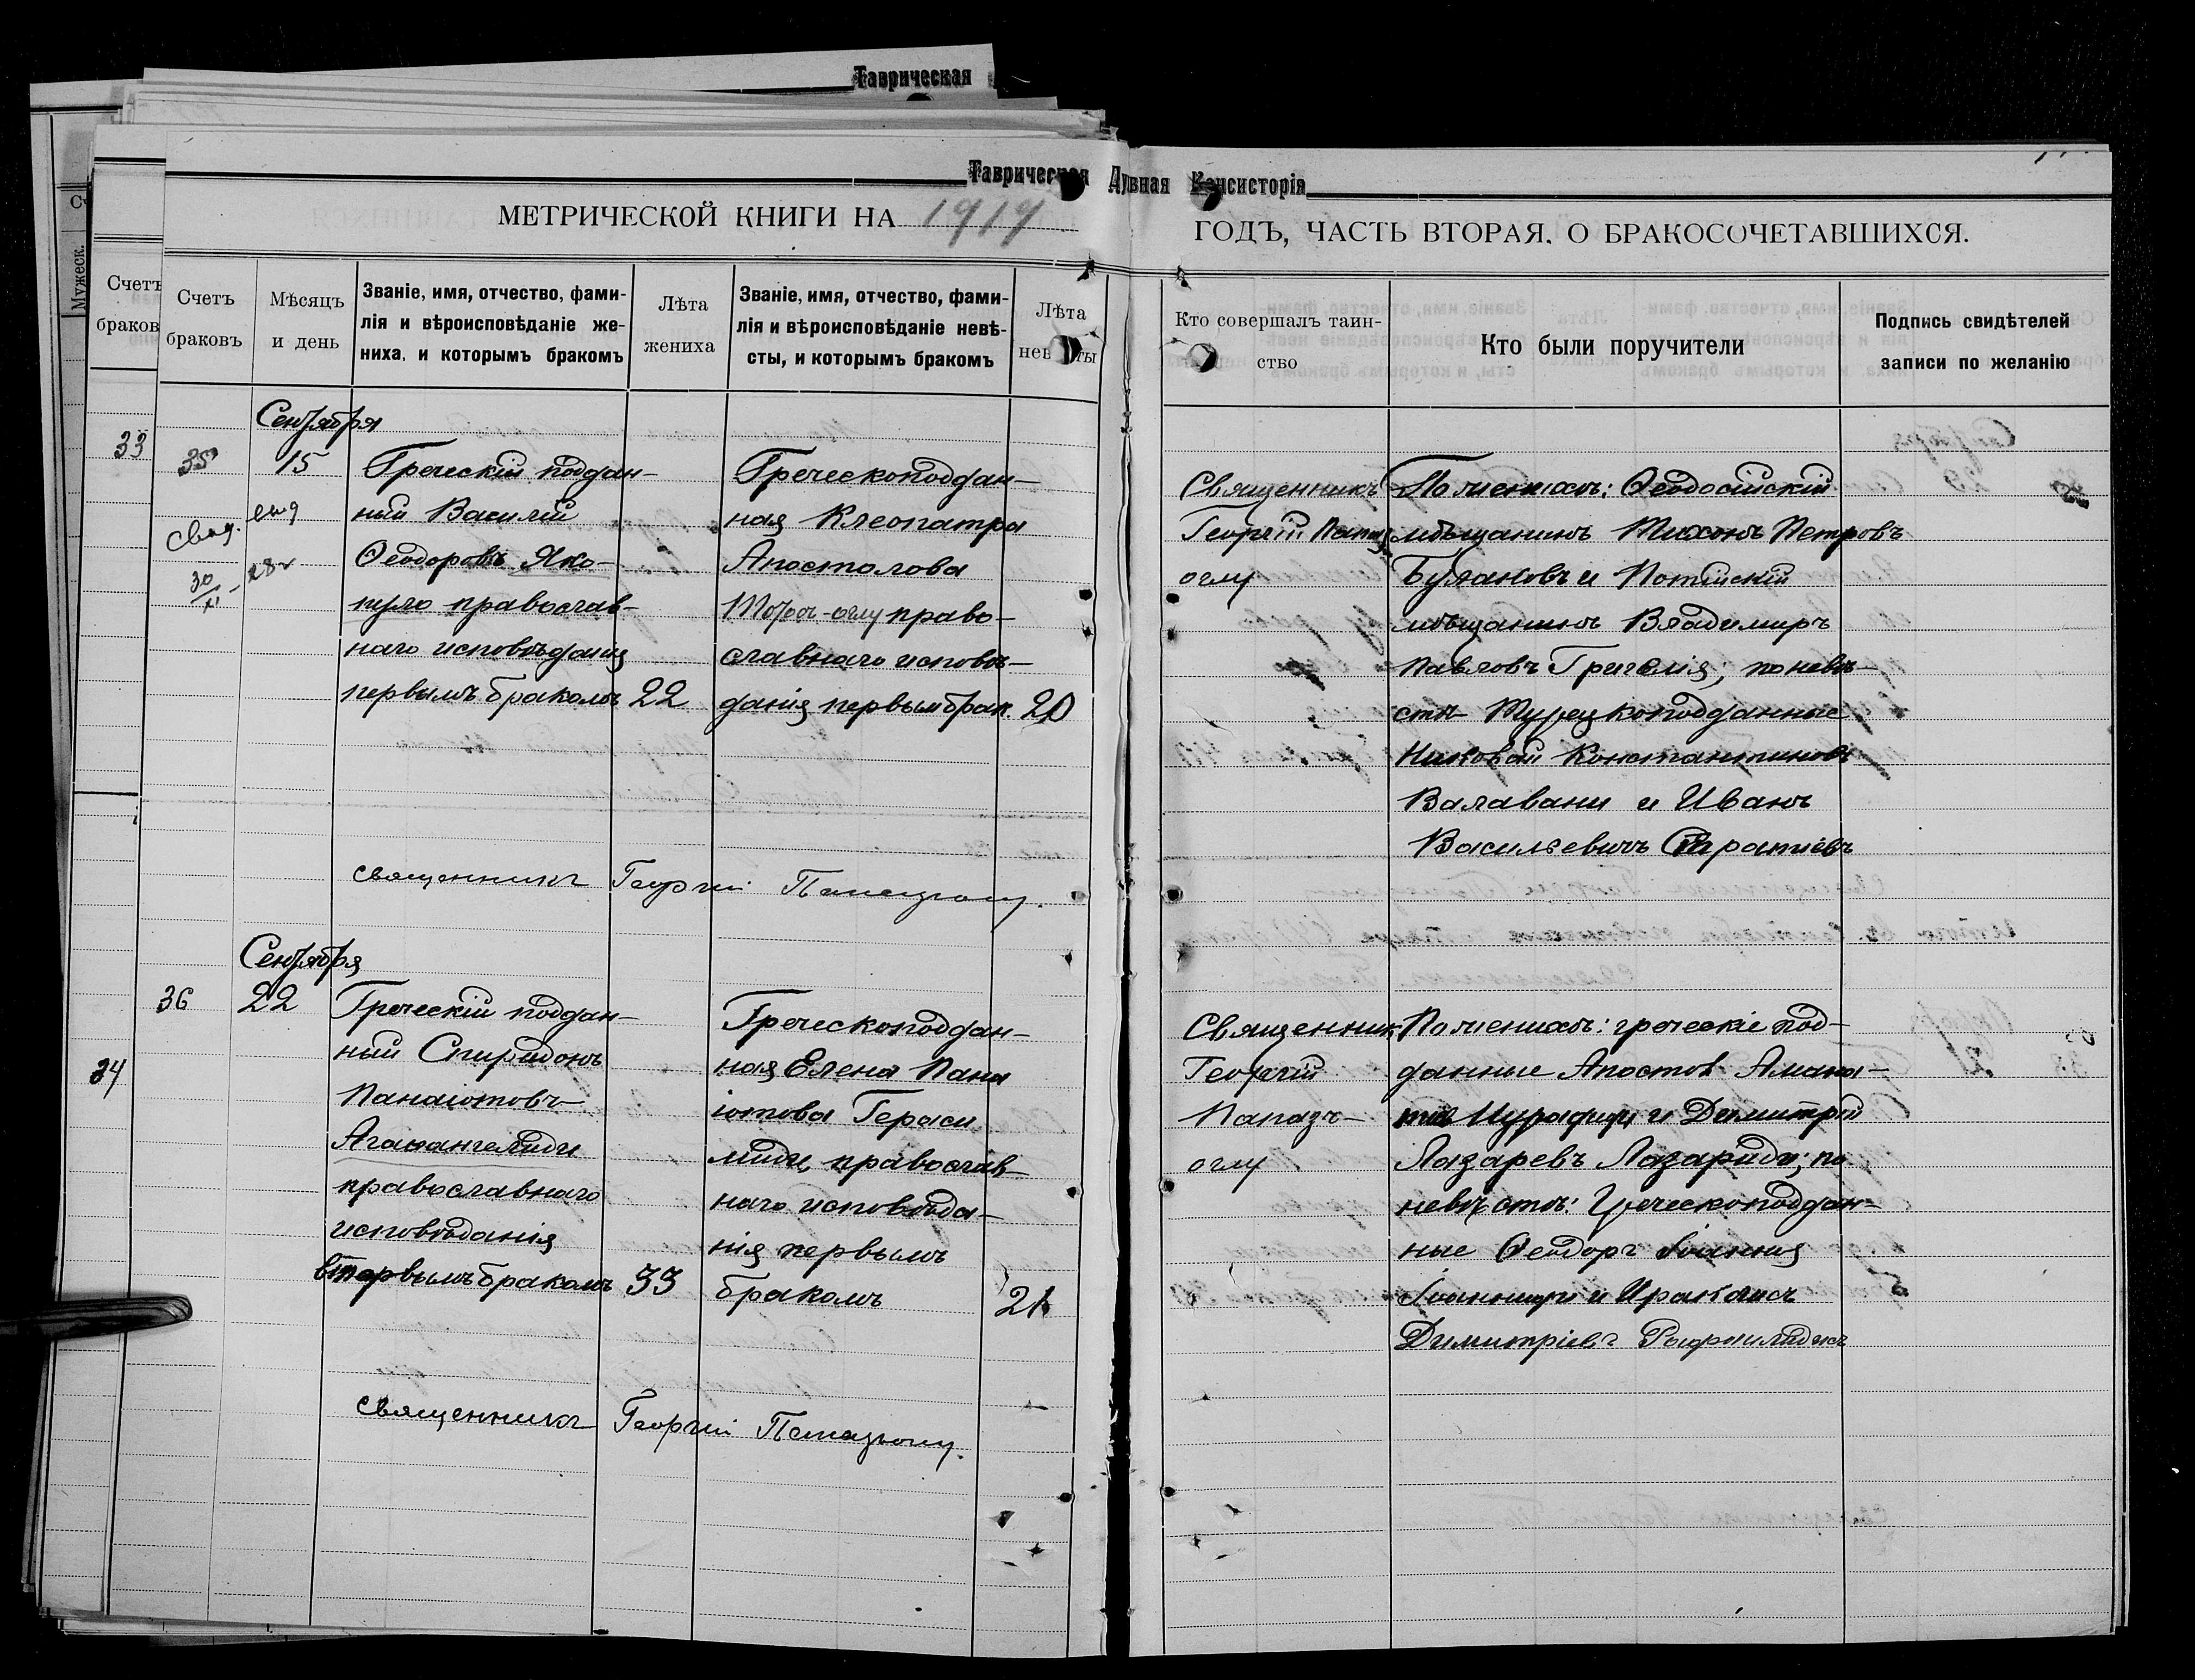 Таврическая
Таврическая
Консисторія
МЕТРИЧЕСКОЙ КНИГИ НА 1919
ГОДЪ, ЧАСТЬ ВТОРАЯ. О БРАКОСОЧЕТАВШИХСЯ.
Мужеск.
Счетъ
браков
Счетъ
браковъ
Мѣсяцъ
и день
Званіе, имя, отчество, фами-
лія и вѣроисповѣданіе же-
ниха, и которымъ бракомъ
Лѣта
жениха
Званіе, имя, отчество, фами-
лія и вѣроисповѣданіе невѣ-
сты, и которымъ бракомъ
Лѣта
Кто совершалъ таин-
ство
Кто были поручители
Подпись свидѣтелей
записи по желанію
33
35
Сентября
15
Греческій поддан-
ный Василій
Ѳеодоровъ Яко-
пуло православ-
наго исповѣданія
первымъ бракомъ
22
Греческоподдан-
ная Клеопатра
Апостолова
право-
славнаго исповѣ-
данія первым брак.
20
Священникъ
Георгій Папаз
оглу
По женихѣ: Ѳеодосійскій
мѣщанинъ Тихонъ Петровъ
Булановъ и Потійскій
мѣщанинъ Владимиръ
Павловъ Григолія; по невѣ-
стѣ Турецкоподданные
Николай Константиновъ
Валавани и Иванъ
Васильевичъ
священникъ Георгій Папазъоглу.
34
36
Сентября
22
Греческій поддан-
ный Спиридонъ
Панаіотовъ
Агаѳангелиди
православнаго
исповѣданія
вторымъ бракомъ
33
Греческоподдан-
ная Елена Пана
іотова Гераси
миди, православ-
наго исповѣда-
нія первымъ
бракомъ
21
Священник
Георгій
Папазъ-
оглу
По женихѣ: греческіе под-
данные Апостол
и Димитрій
Лазаревъ Лазариди; по
невѣстѣ: Греческоподдан-
ные Ѳеодоръ
и Ираклисъ
Димитріевъ
священникъ Георгій Папазъоглу.